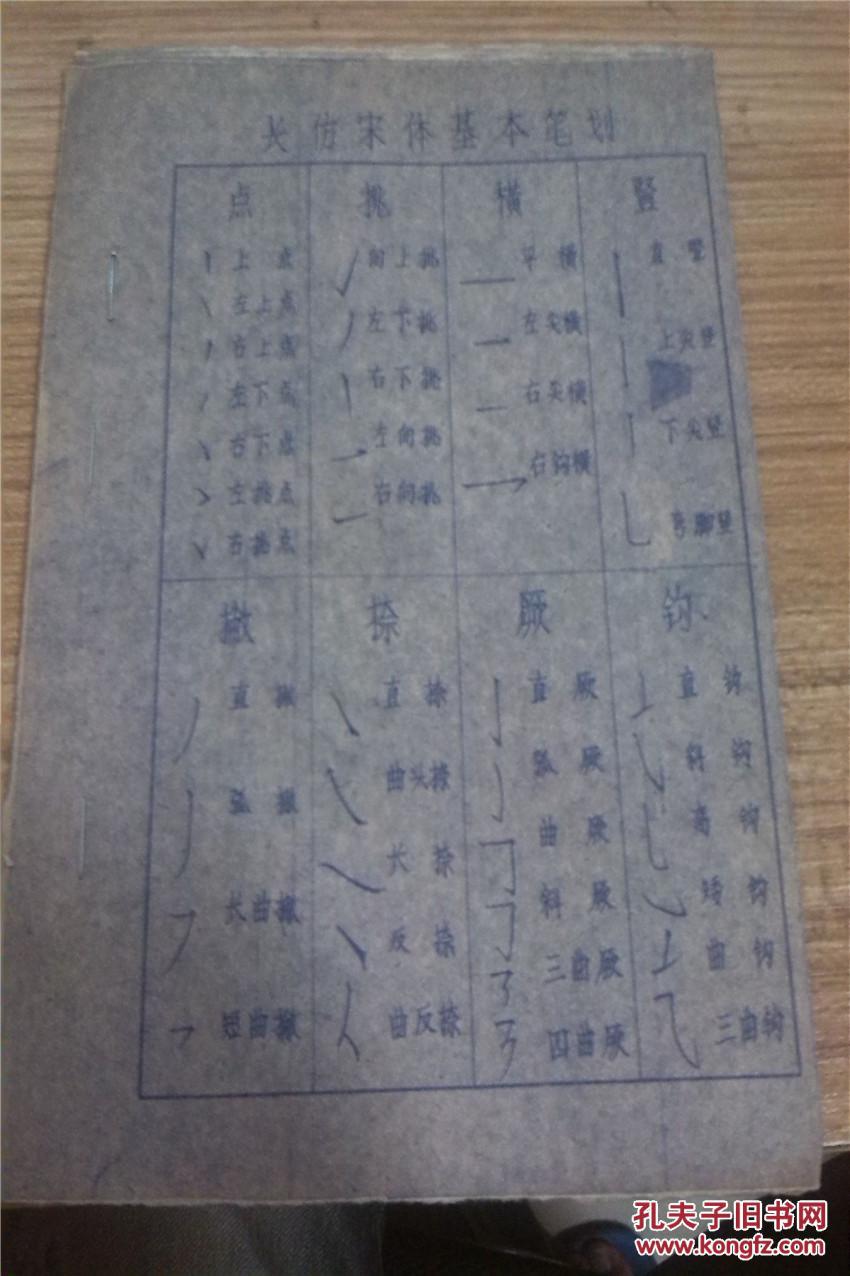 长仿宋体基本笔划
点 挑 横 竖
上点
左上点
右上点
左下点
右下点
左挑点
右挑点
向上挑
左下挑
右下挑
左向挑
右向挑
平横
左尖横
右尖横
右钩横
直竖
上尖竖
下尖竖
弯脚竖
撇 捺 厥 钩
直撇
弧撇
长曲撇
短曲撇
直捺
曲头捺
长捺
反捺
曲反捺
直厥
弧厥
曲厥
斜厥
三曲厥
四曲厥
直钩
斜钩
高钩
矮钩
曲钩
三曲钩
孔夫子旧书网
www.kongfz.com